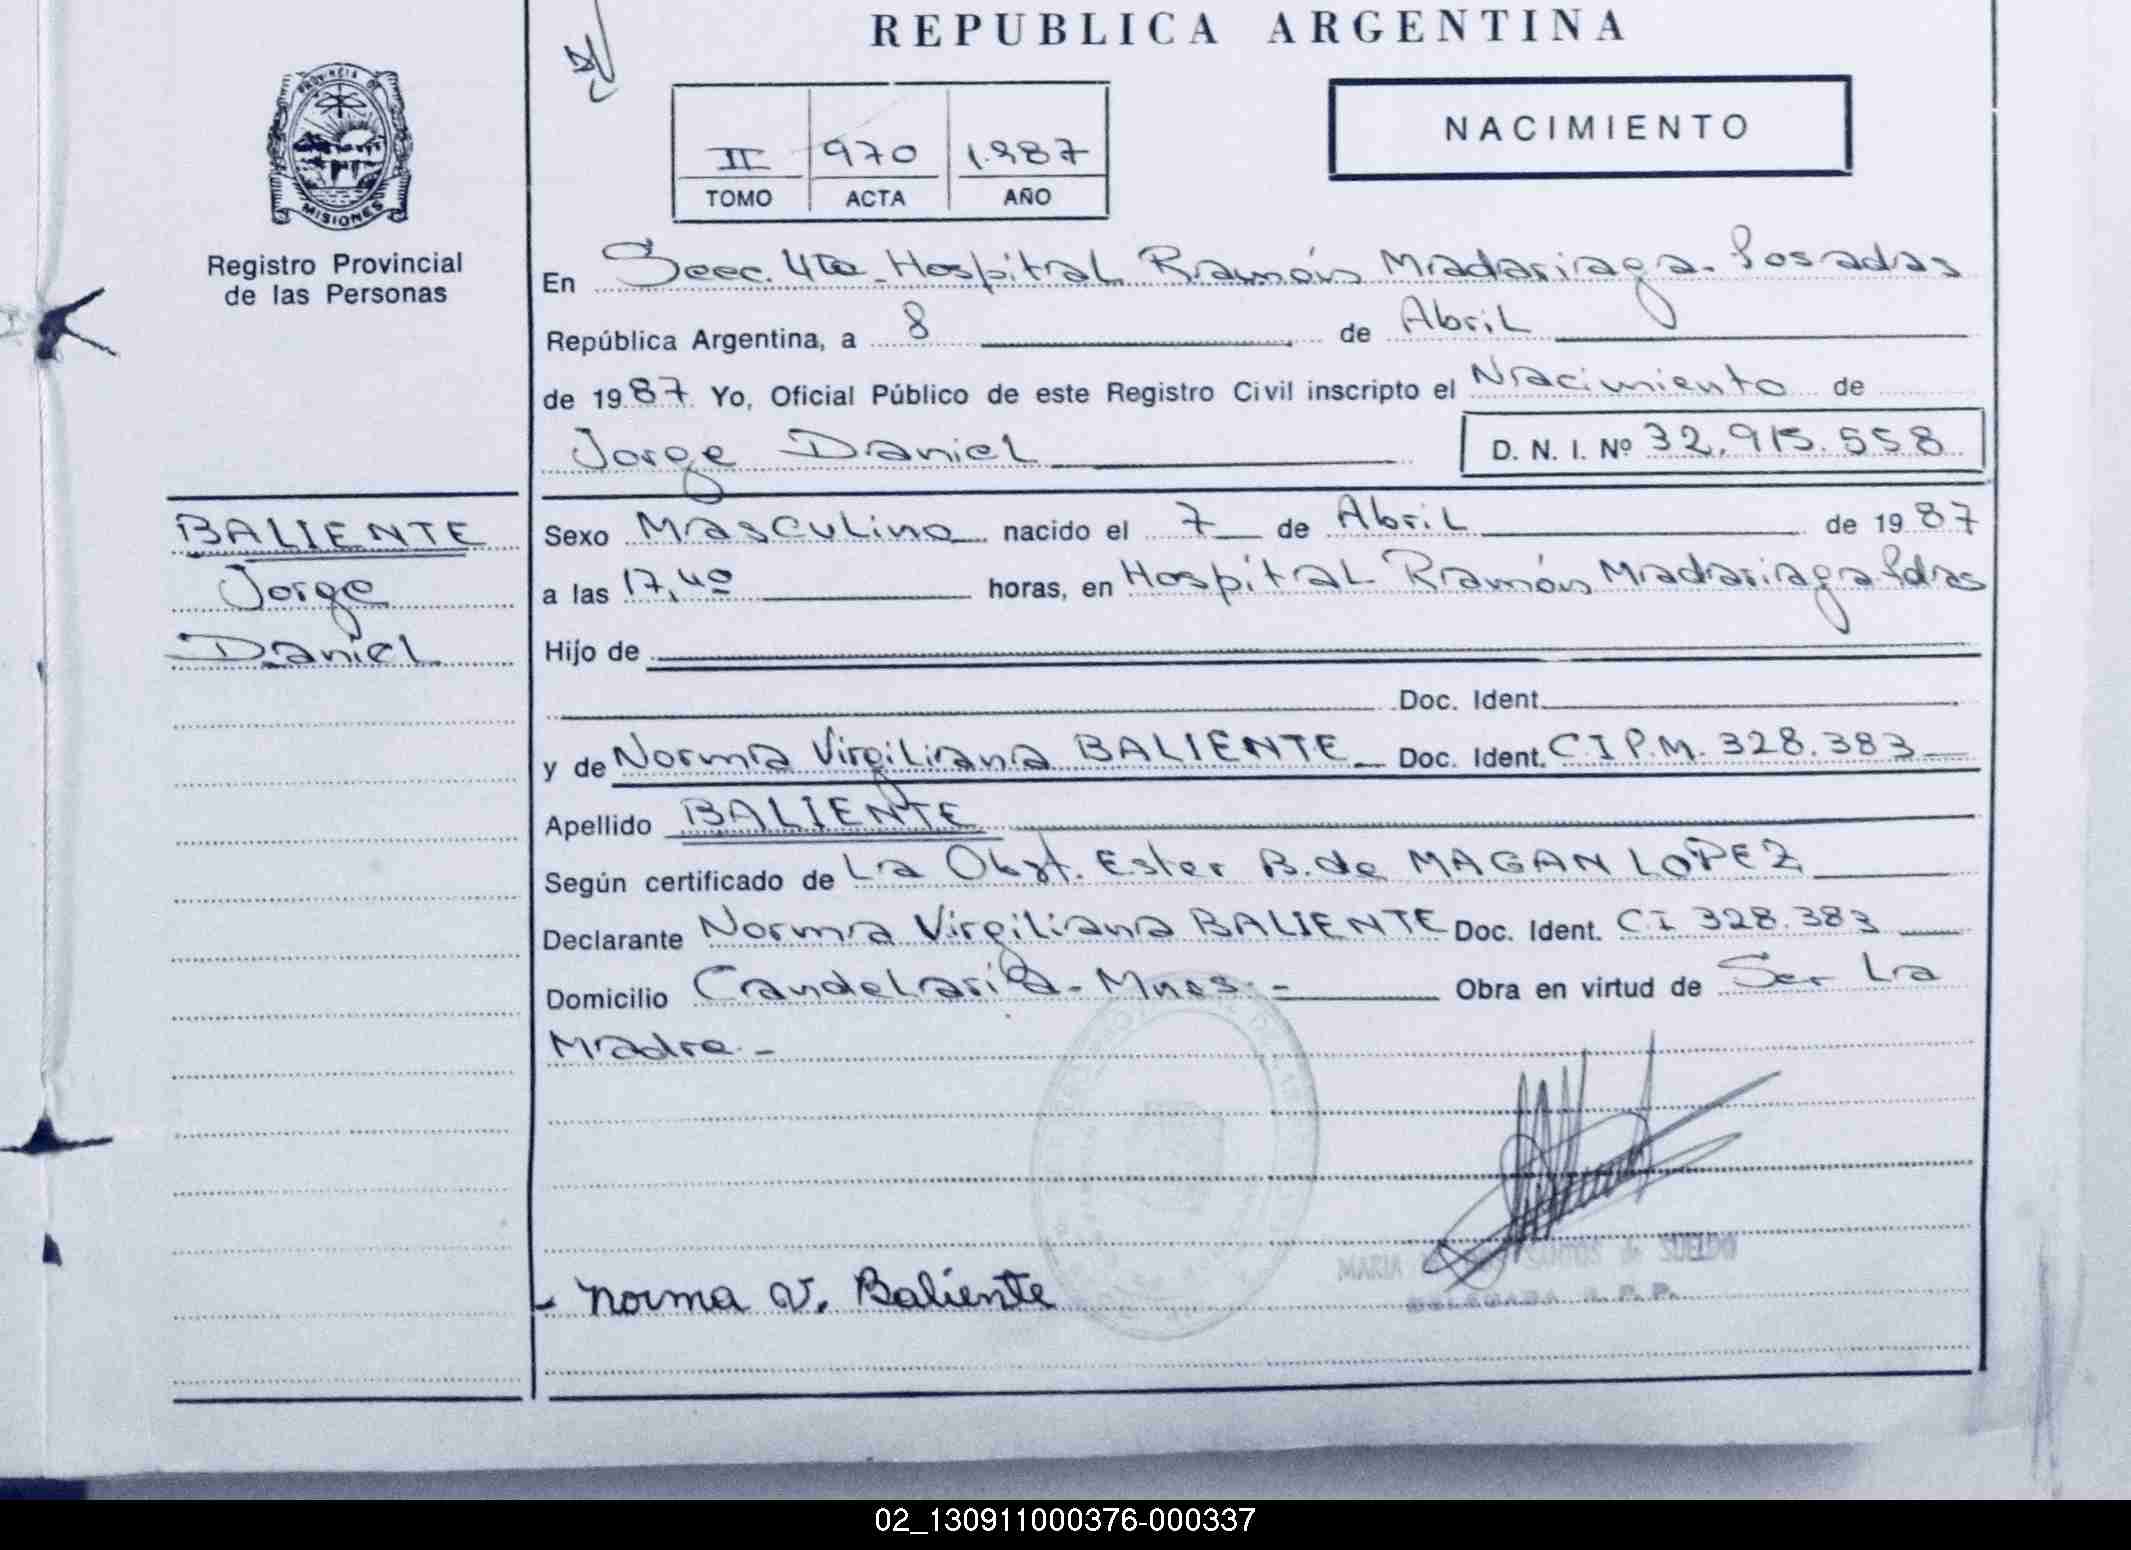 REPUBLICA ARGENTINA
PROVINCIA DE
MISIONES
Registro Provincial
de las Personas
II 970 1.987
TOMO ACTA AÑO
NACIMIENTO
En Secc. 4ta - Hospital Ramón Madariaga - Posadas
República Argentina, a 8 de Abril
de 1987 Yo, Oficial Público de este Registro Civil inscripto el Nacimiento de
Jorge Daniel D. N. I. Nº 32.915.558
BALIENTE
Jorge
Daniel
Sexo Masculino nacido el 7 de Abril de 1987
a las 17,40 horas, en Hospital Ramón Madariaga Pdas
Hijo de
Doc. Ident.
y de Norma Virgiliana BALIENTE Doc. Ident. C.I P.M. 328.383
Apellido BALIENTE
Según certificado de La Obst. Ester B. de MAGAN LOPEZ
Declarante Norma Virgiliana BALIENTE Doc. Ident. CI 328.383
Domicilio Candelaria - Mnes. - Obra en virtud de Ser La
Madre. -
MARIA
DELEGADA R. P. P.
- Norma V. Baliente
02_130911000376-000337